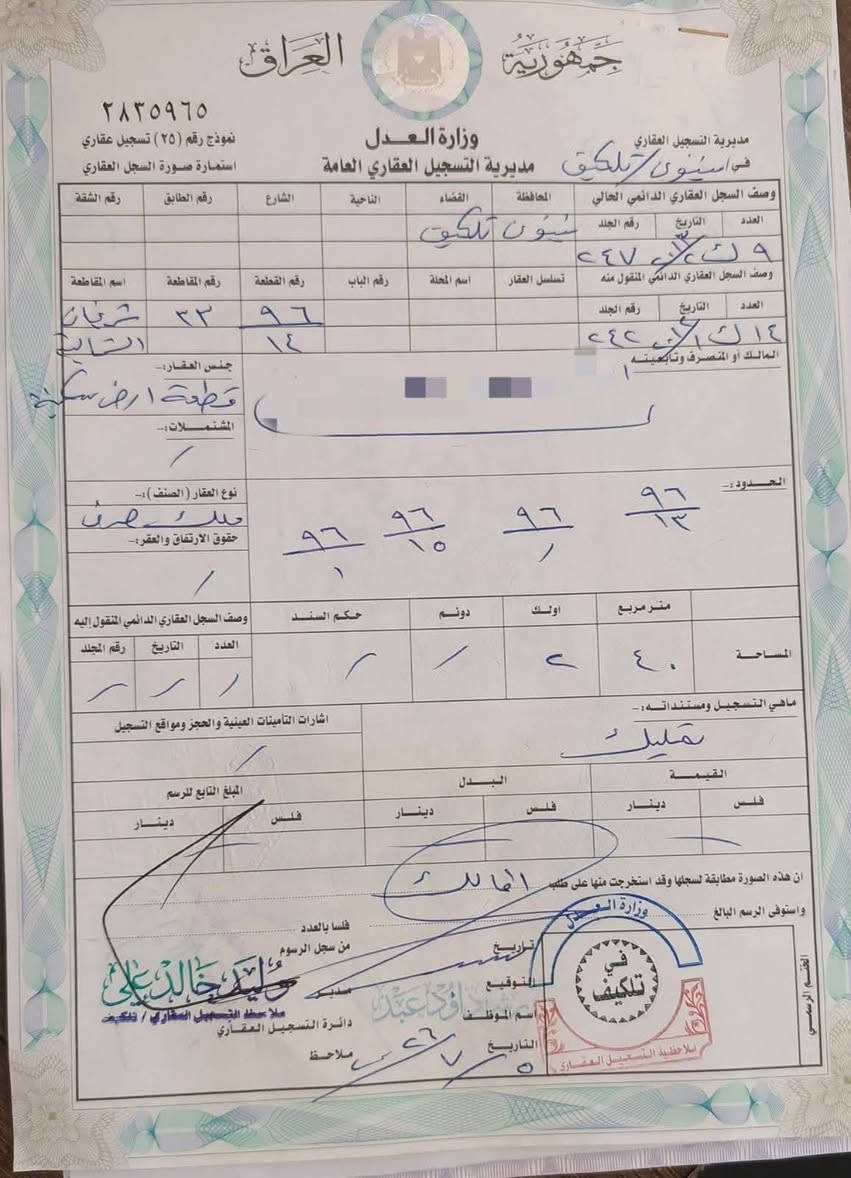 جمهورية العراق
٢٨٣٥٩٦٥
وزارة العدل
مديرية التسجيل العقاري العامة
مديرية التسجيل العقاري
في / نينوى / تلكيف
نموذج رقم (٢٥) تسجيل عقاري
استمارة صورة السجل العقاري
وصف السجل العقاري الدائمي الحالي المحافظة القضاء الناحية الشارع رقم الطابق رقم الشقة
العدد التاريخ رقم الجلد نينوى تلكيف
٩ ك٢ ٢٤٧
وصف السجل العقاري الدائمي المنقول منه تسلسل العقار اسم المحلة رقم الباب رقم القطعة رقم المقاطعة اسم المقاطعة
العدد التاريخ رقم الجلد ٩٦ ٣٣ شريخان
١٤ ك١ ٢٤٢ ١٤ الشمالية
المالك أو المتصرف وتابعيته
جنس العقار:-
قطعة ارض سكنية
المشتملات:-
/
الحدود:-
٩٦/١٣ ٩٦/١ ٩٦/١٥ ٩٦/١
نوع العقار (الصنف):-
ملك صرف
حقوق الارتفاق والعقر:-
/
متر مربع اولك دونم حكم السند
المساحة ٤٠ ٢ / /
وصف السجل العقاري الدائمي المنقول إليه
العدد التاريخ رقم المجلد
/ / /
ماهي التسجيل ومستنداته:-
تمليك
اشارات التأمينات العينية والحجز ومواقع التسجيل
/
القيمة البدل المبلغ التابع للرسم
فلس دينار فلس دينار فلس دينار
ان هذه الصورة مطابقة لسجلها وقد استخرجت منها على طلب المالك
واستوفى الرسم البالغ فلسا بالعدد
تاريخ من سجل الرسوم
التوقيع مدير
اسم الموظف دائرة التسجيل العقاري
التاريخ ملاحظ
٥ / ٧ / ٢٦
وليد خالد علي
ملاحظ التسجيل العقاري / تلكيف
داود عبد
وزارة العدل
في تلكيف
ملاحظية التسجيل العقاري
الختم الرسمي